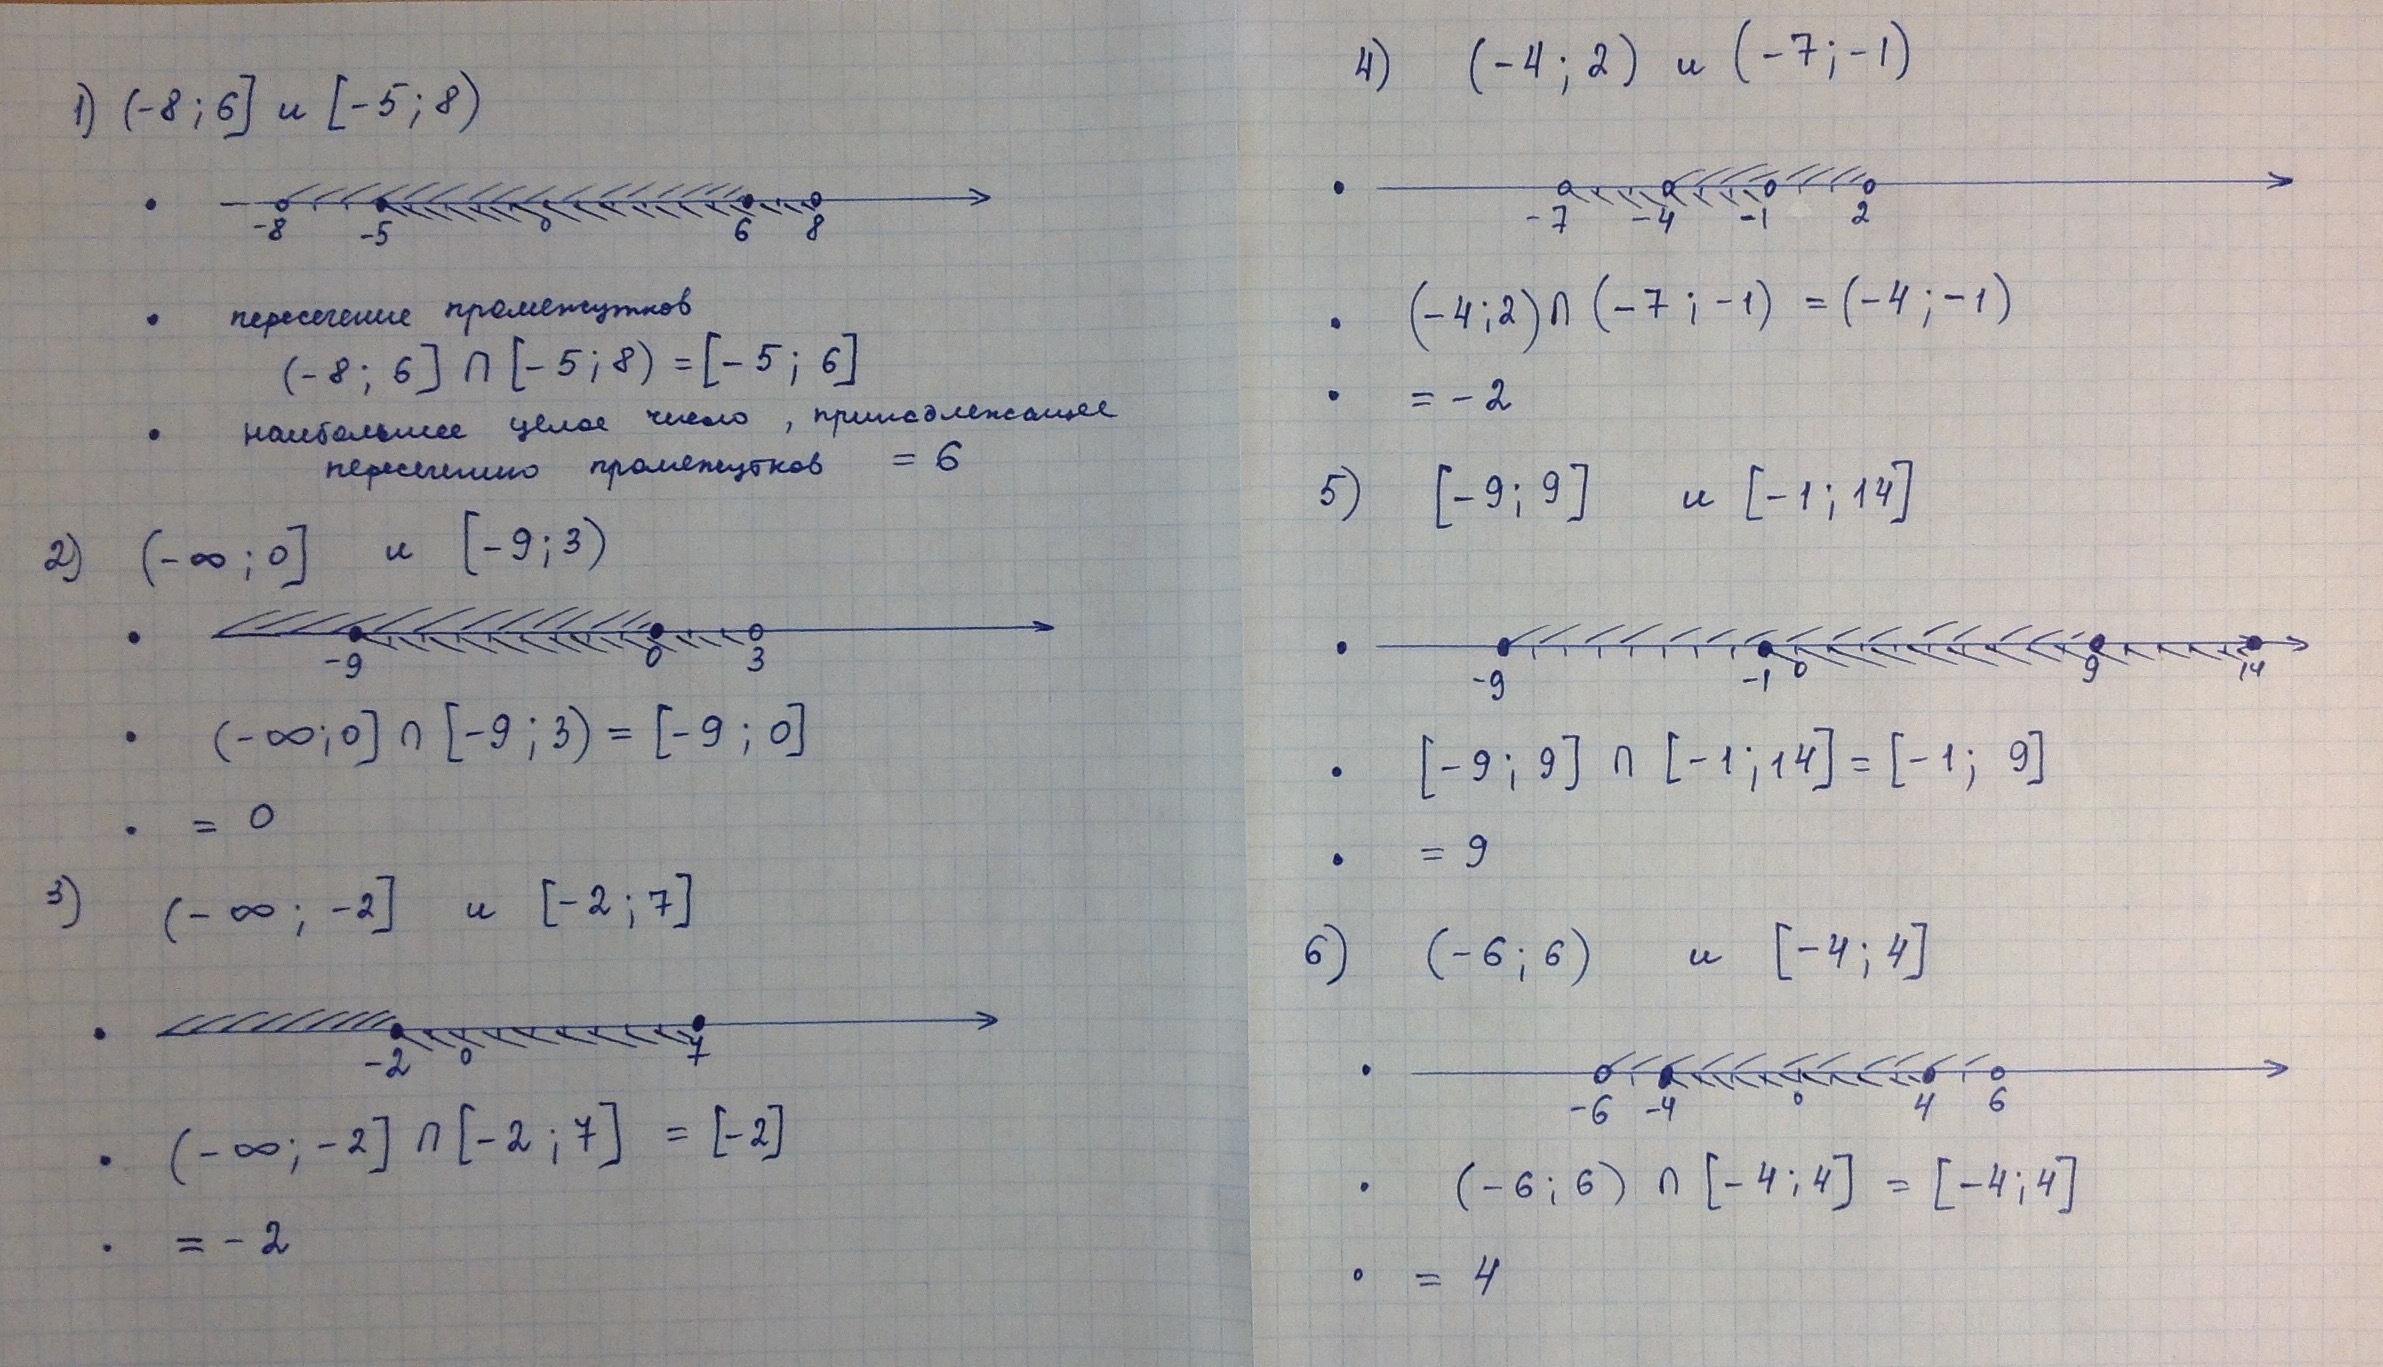 1) (-8; 6] и [-5; 8)
-8 -5 0 6 8
• пересечение промежутков
(-8; 6] ∩ [-5; 8) = [-5; 6]
• наибольшее целое число, принадлежащее
пересечению промежутков = 6
2) (-∞; 0] и [-9; 3)
-9 0 3
• (-∞; 0] ∩ [-9; 3) = [-9; 0]
• = 0
3) (-∞; -2] и [-2; 7]
-2 0 7
• (-∞; -2] ∩ [-2; 7] = [-2]
• = -2
4) (-4; 2) и (-7; -1)
-7 -4 -1 2
• (-4; 2) ∩ (-7; -1) = (-4; -1)
• = -2
5) [-9; 9] и [-1; 14]
-9 -1 0 9 14
• [-9; 9] ∩ [-1; 14] = [-1; 9]
• = 9
6) (-6; 6) и [-4; 4]
-6 -4 0 4 6
• (-6; 6) ∩ [-4; 4] = [-4; 4]
• = 4